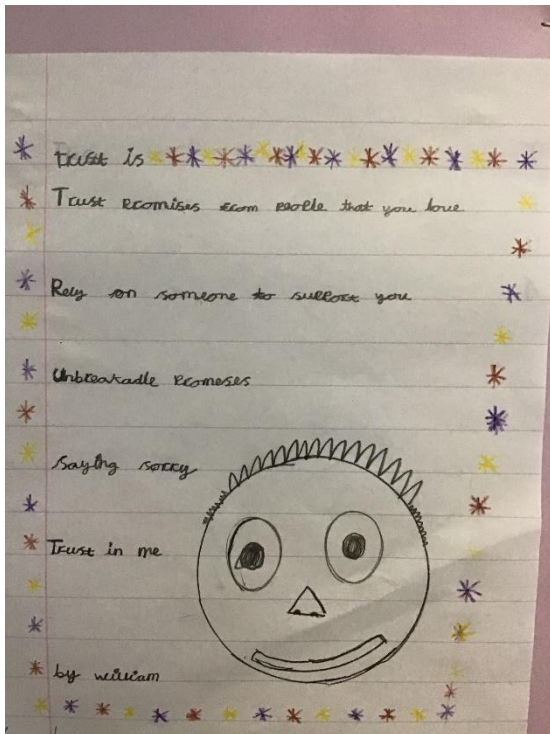 trust is
Trust promises from people that you love
Rely on someone to support you
Unbreakable promeses
Saying sorry
Trust in me
by william